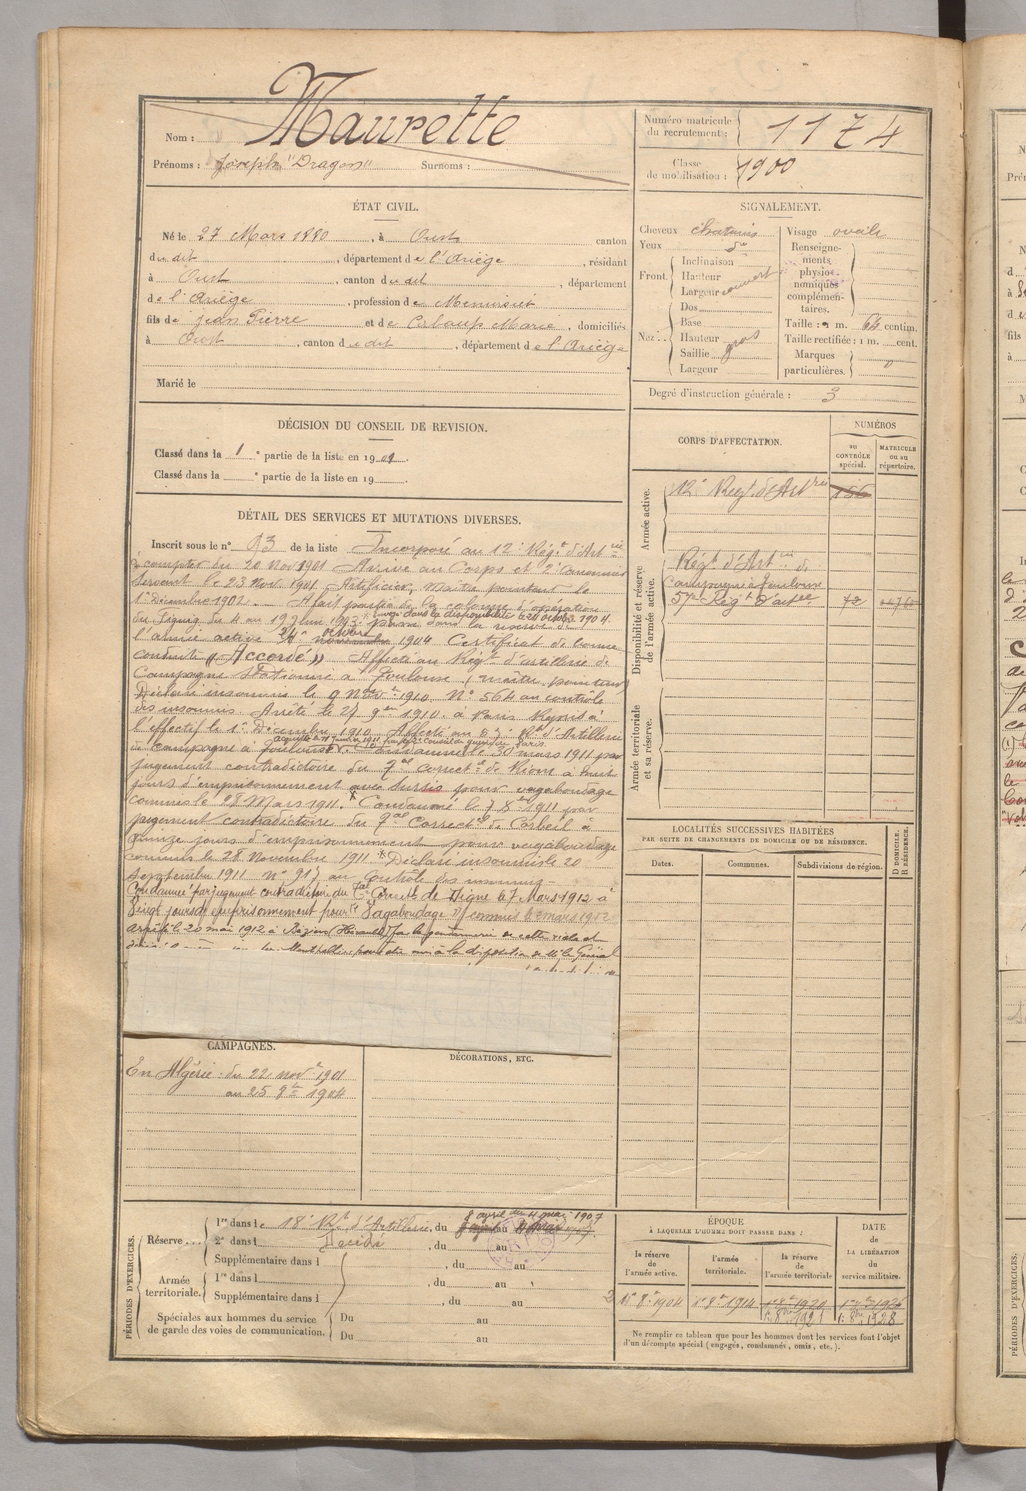 Nom : Maurette
Prénoms : Joseph "Dragon" Surnoms :
Numéro matricule du recrutement : 1174
Classe de mobilisation : 1900
ÉTAT CIVIL.
Né le 27 Mars 1880, à Oust canton
du dit, département de l'Ariège, résidant
à Oust, canton du dit, département
de l'Ariège, profession de Menuisier
fils de Jean Pierre et de Marie, domiciliés
à Oust, canton du dit, département de l'Ariège
Marié le
SIGNALEMENT.
Cheveux chatains
Yeux do
Front Inclinaison
Hauteur
Largeur couvert
Nez Dos
Base
Hauteur
Saillie gros
Largeur
Visage ovale
Renseignements physionomiques complémentaires.
Taille : 1 m. 64 centim.
Taille rectifiée : 1 m. cent.
Marques particulières.
Degré d'instruction générale : 3
DÉCISION DU CONSEIL DE REVISION.
Classé dans la 1e partie de la liste en 1901.
Classé dans la e partie de la liste en 19
DÉTAIL DES SERVICES ET MUTATIONS DIVERSES.
Inscrit sous le n° 93 de la liste Incorporé au 12e Régt d'Artrie
à compter du 20 Nov 1901 Arrivé au Corps et 2e Canonnier
Servant le 23 Nov. 1901. Artificier, Maitre pointeur le
1er Décembre 1902. A fait partie de la colonne d'opération
du Figuig du 4 au 19 Juin 1903. Envoyé dans la disponibilité le 20 octobre 1904.
passé dans la réserve de
l'armée active 1904 Certificat de bonne
conduite "Accordé" Affecté au Régt d'artillerie de
Campagne stationné à Toulouse (maitre pointeur)
Déclaré insoumis le 9 Novbre 1910. N° 564 au contrôle
des insoumis. Arrêté le 27 9bre 1910. à Paris Rayé à
l'effectif le 1er Décembre 1910. Affecté au Régt d'Artillerie
de campagne à Toulouse. Condamné le 30 mars 1911 par
jugement contradictoire du Tal correctel de Riom à huit
jours d'emprisonnement avec sursis pour vagabondage
commis le 28 Mars 1911. Condamné le 7 Xbre 1911 par
jugement contradictoire du Tal Correctel de Corbeil à
quinze jours d'emprisonnement pour vagabondage
commis le 28 Novembre 1911 Déclaré insoumis le 20
Septembre 1911 n° 917 au Contrôle des insoumis
Condamné par jugement contradictoire du Tal Correctel de Digne le 7 Mars 1912 à
Vingt jours d'emprisonnement pour "Vagabondage" commis le 2 mars 1912
Arrêté le 20 mai 1912 à Béziers (Hérault) par la gendarmerie de cette ville et
Montpellier pour être mis à la disposition de Mr le Général
CORPS D'AFFECTATION.
NUMÉROS
au CONTRÔLE spécial.
MATRICULE ou au répertoire.
Armée active.
12e Régt d'Artrie 156
Disponibilité et réserve de l'armée active.
Régt d'Artrie de
Campagne à Toulouse
57me Régt d'artie 72
Armée territoriale et sa réserve.
LOCALITÉS SUCCESSIVES HABITÉES
PAR SUITE DE CHANGEMENTS DE DOMICILE OU DE RÉSIDENCE.
Dates. Communes. Subdivisions de région.
D DOMICILE. R RÉSIDENCE.
CAMPAGNES.
En Algérie : du 22 novbre 1901
au 25 8bre 1904
DÉCORATIONS, ETC.
PÉRIODES D'EXERCICES.
Réserve
1re dans le 18e Rt d'Artillerie, du 8 avril au 4 mai 1907
2e dans l , du au
Supplémentaire dans l , du au
Armée territoriale.
1re dans l , du au
Supplémentaire dans l , du au
Spéciales aux hommes du service de garde des voies de communication.
Du au
Du au
ÉPOQUE
À LAQUELLE L'HOMME DOIT PASSER DANS :
la réserve de l'armée active.
l'armée territoriale.
la réserve de l'armée territoriale
DATE de LA LIBÉRATION du service militaire.
1er 8bre 1904 1er 8bre 1914 1er 8bre 1920 1er 8bre 1926
1er 8bre 1921 1er 8bre 1928
Ne remplir ce tableau que pour les hommes dont les services font l'objet
d'un décompte spécial (engagés, condamnés, omis, etc.).